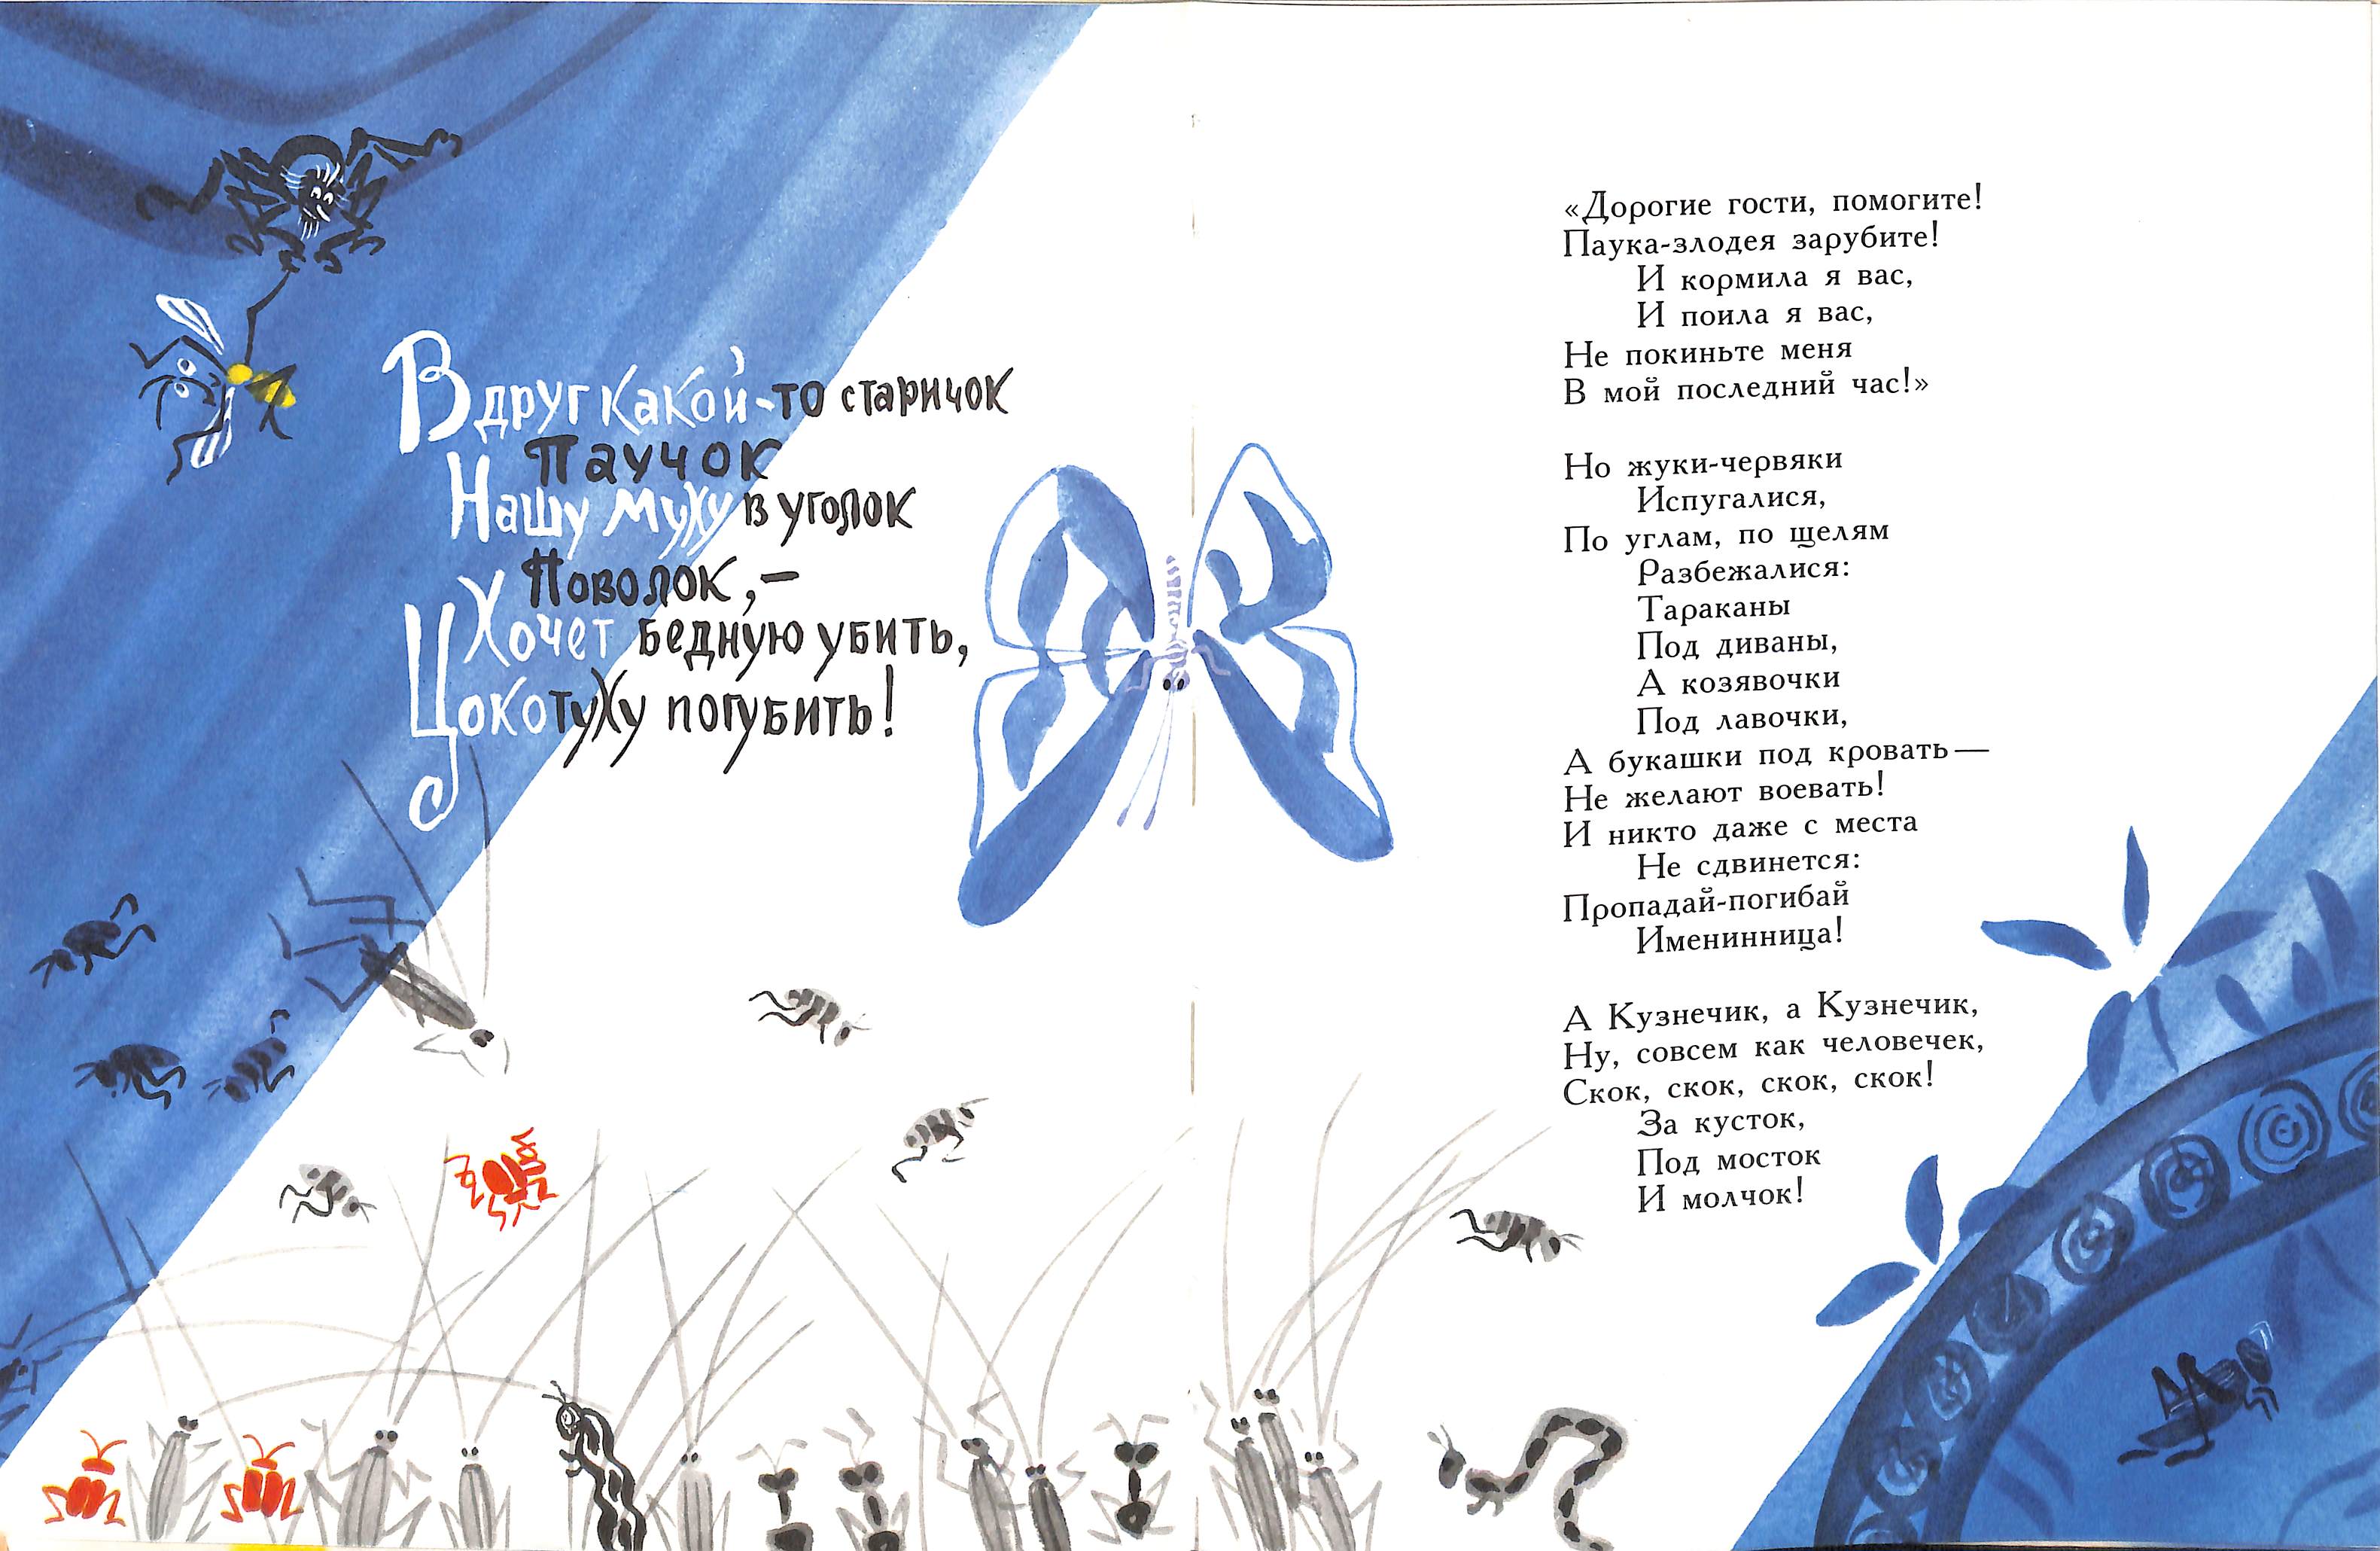 Вдруг какой-то старичок
Паучок
Нашу муху в уголок
Поволок,—
Хочет бедную убить,
Цокотуху погубить!
«Дорогие гости, помогите!
Паука-злодея зарубите!
И кормила я вас,
И поила я вас,
Не покиньте меня
В мой последний час!»
Но жуки-червяки
Испугалися,
По углам, по щелям
Разбежалися:
Тараканы
Под диваны,
А козявочки
Под лавочки,
А букашки под кровать—
Не желают воевать!
И никто даже с места
Не сдвинется:
Пропадай-погибай
Именинница!
А Кузнечик, а Кузнечик,
Ну, совсем как человечек,
Скок, скок, скок, скок!
За кусток,
Под мосток
И молчок!